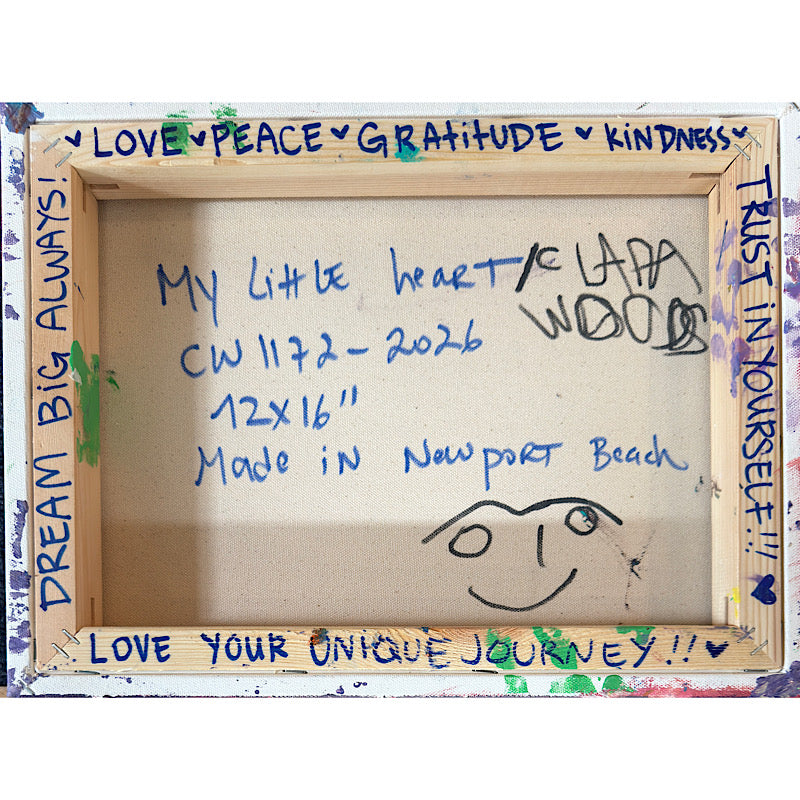 LOVE PEACE GRAtitUDE KiNDNESS
TRUST iN YOURSELF!!!
DREAM BiG ALWAYS!
My LittLE heart /C LAPA
WOODS
CW 1172-2026
12x16"
Made iN Newport Beach
LOVE YOUR UNIQUE JOURNEY!!